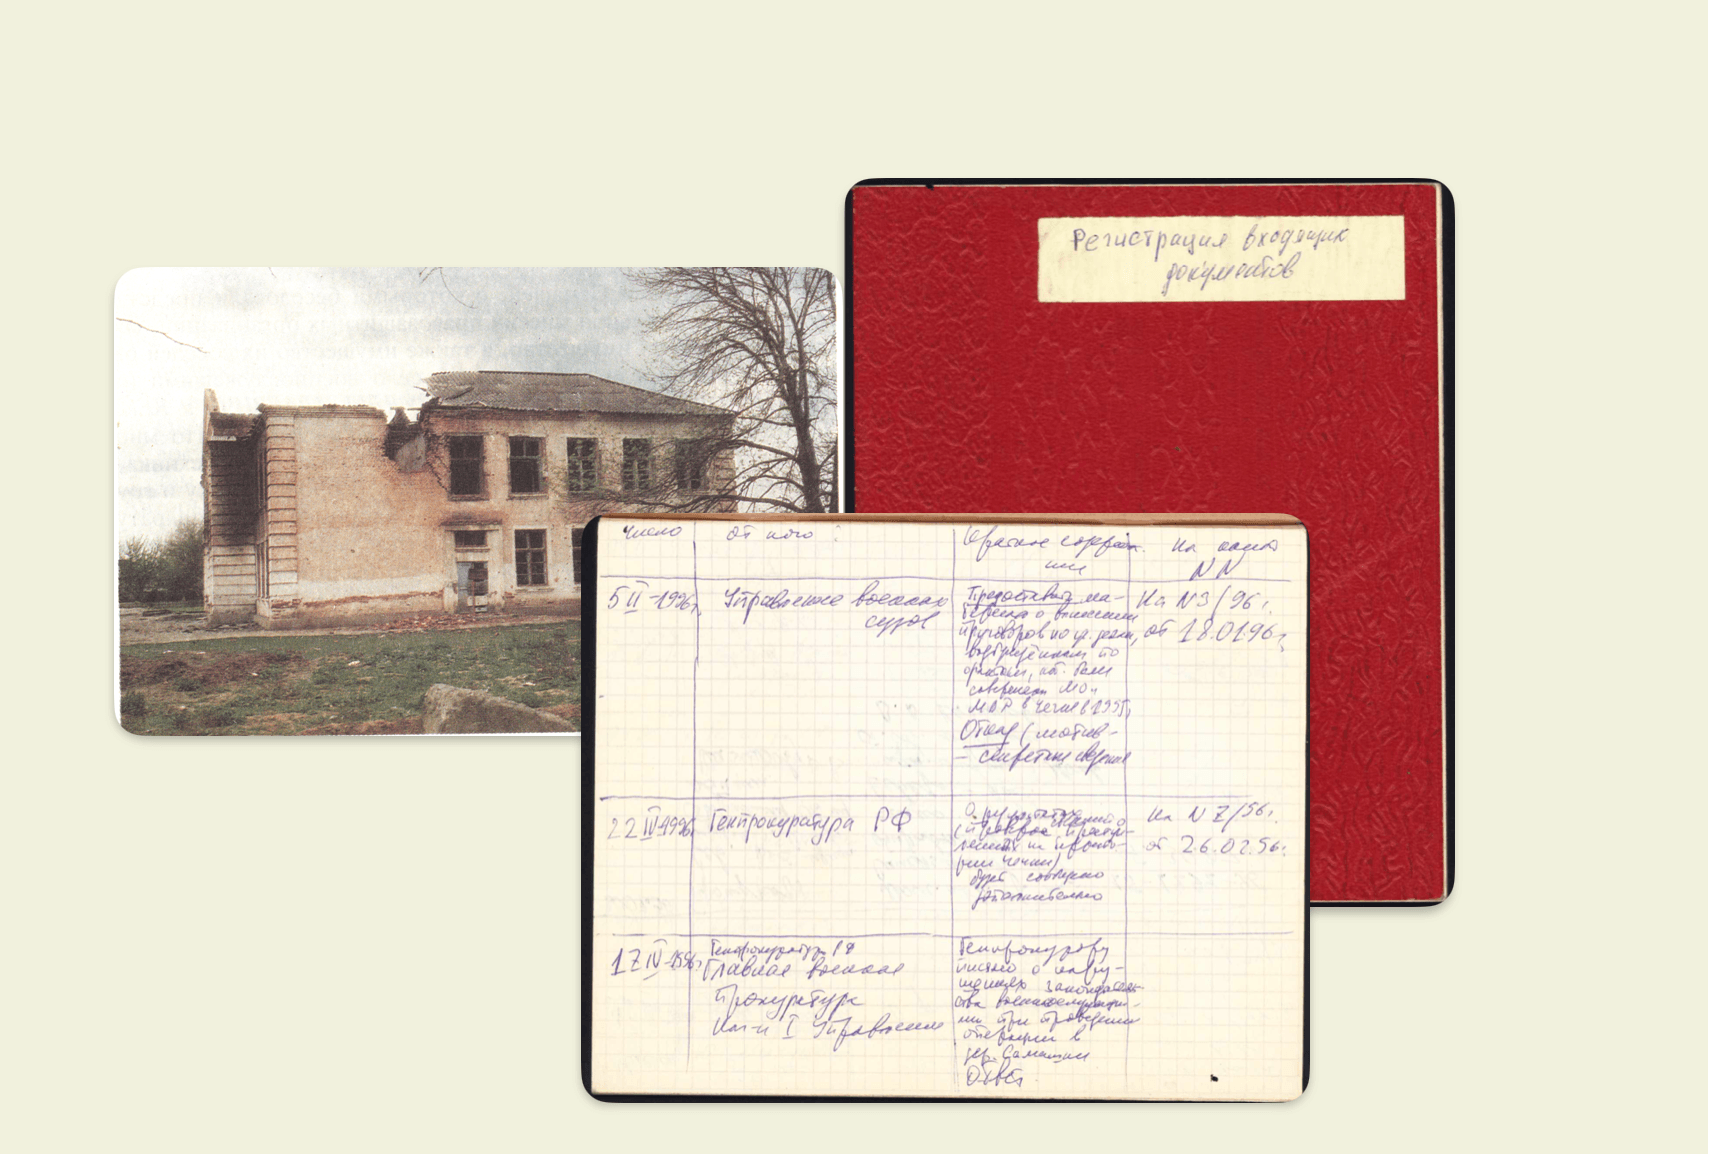 Регистрация входящих
документов
число
от кого:
Краткое содержа-
ние
На какой
NN
5 II-1996г.
Управление военных
судов
Предоставить ма-
териал о вынесении
приговоров по уг. делам,
возбуждённым по
фактам, кот. были
совершены МО и
МВР в Чечне в 1995г.
Отказ (мотив-
- секретные сведения
На N3/96г.
от 18.01.96г.
22 IV-1996г.
Генпрокуратура РФ
О результатах
(проверок
Чечни)
будет сообщено
дополнительно
На N 7/96г.
от 26.02.96г.
17 IV-1996г.
Генпрокуратура РФ
Главная военная
Прокуратура
I Управления
Генпрокурору
письмо о нару-
шениях законодатель-
ства военнослужащи-
ми при проведении
операции в
дер. Самашки
Ответ